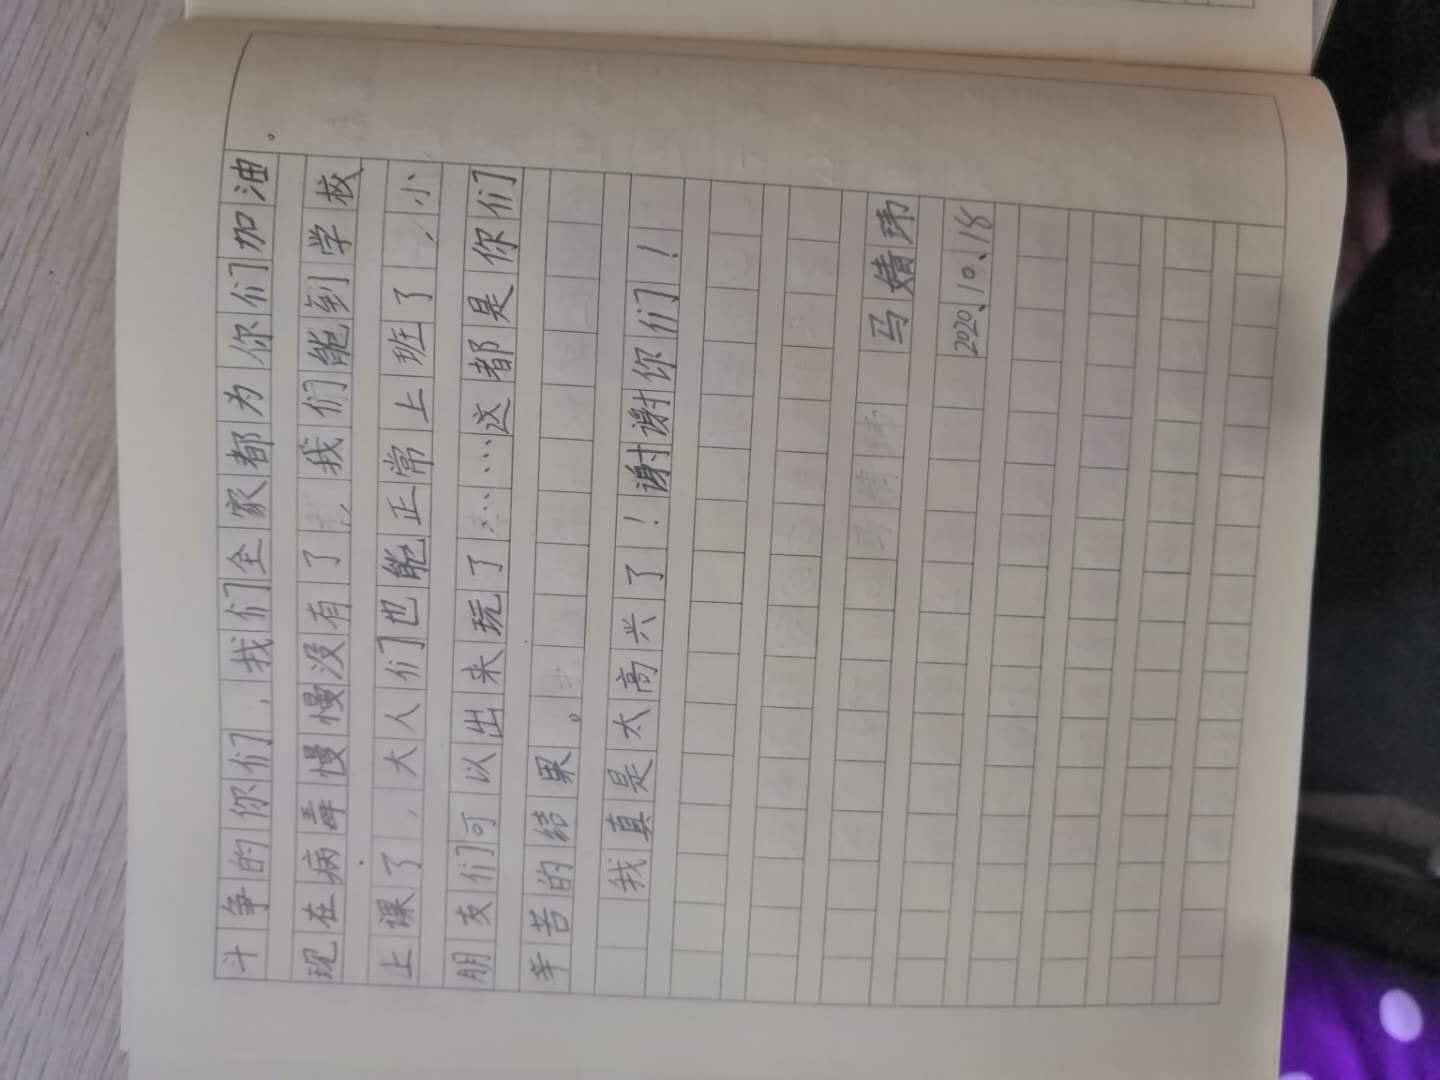 斗争的你们，我们全家都为你们加油。
现在病毒慢慢没有了，我们能到学校
上课了，大人们也能正常上班了，小
朋友们可以出来玩了……这都是你们
辛苦的结果。
我真是太高兴了！谢谢你们！
马婧玮
2020、10、18